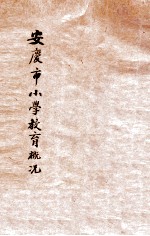 安慶市小學教育概况